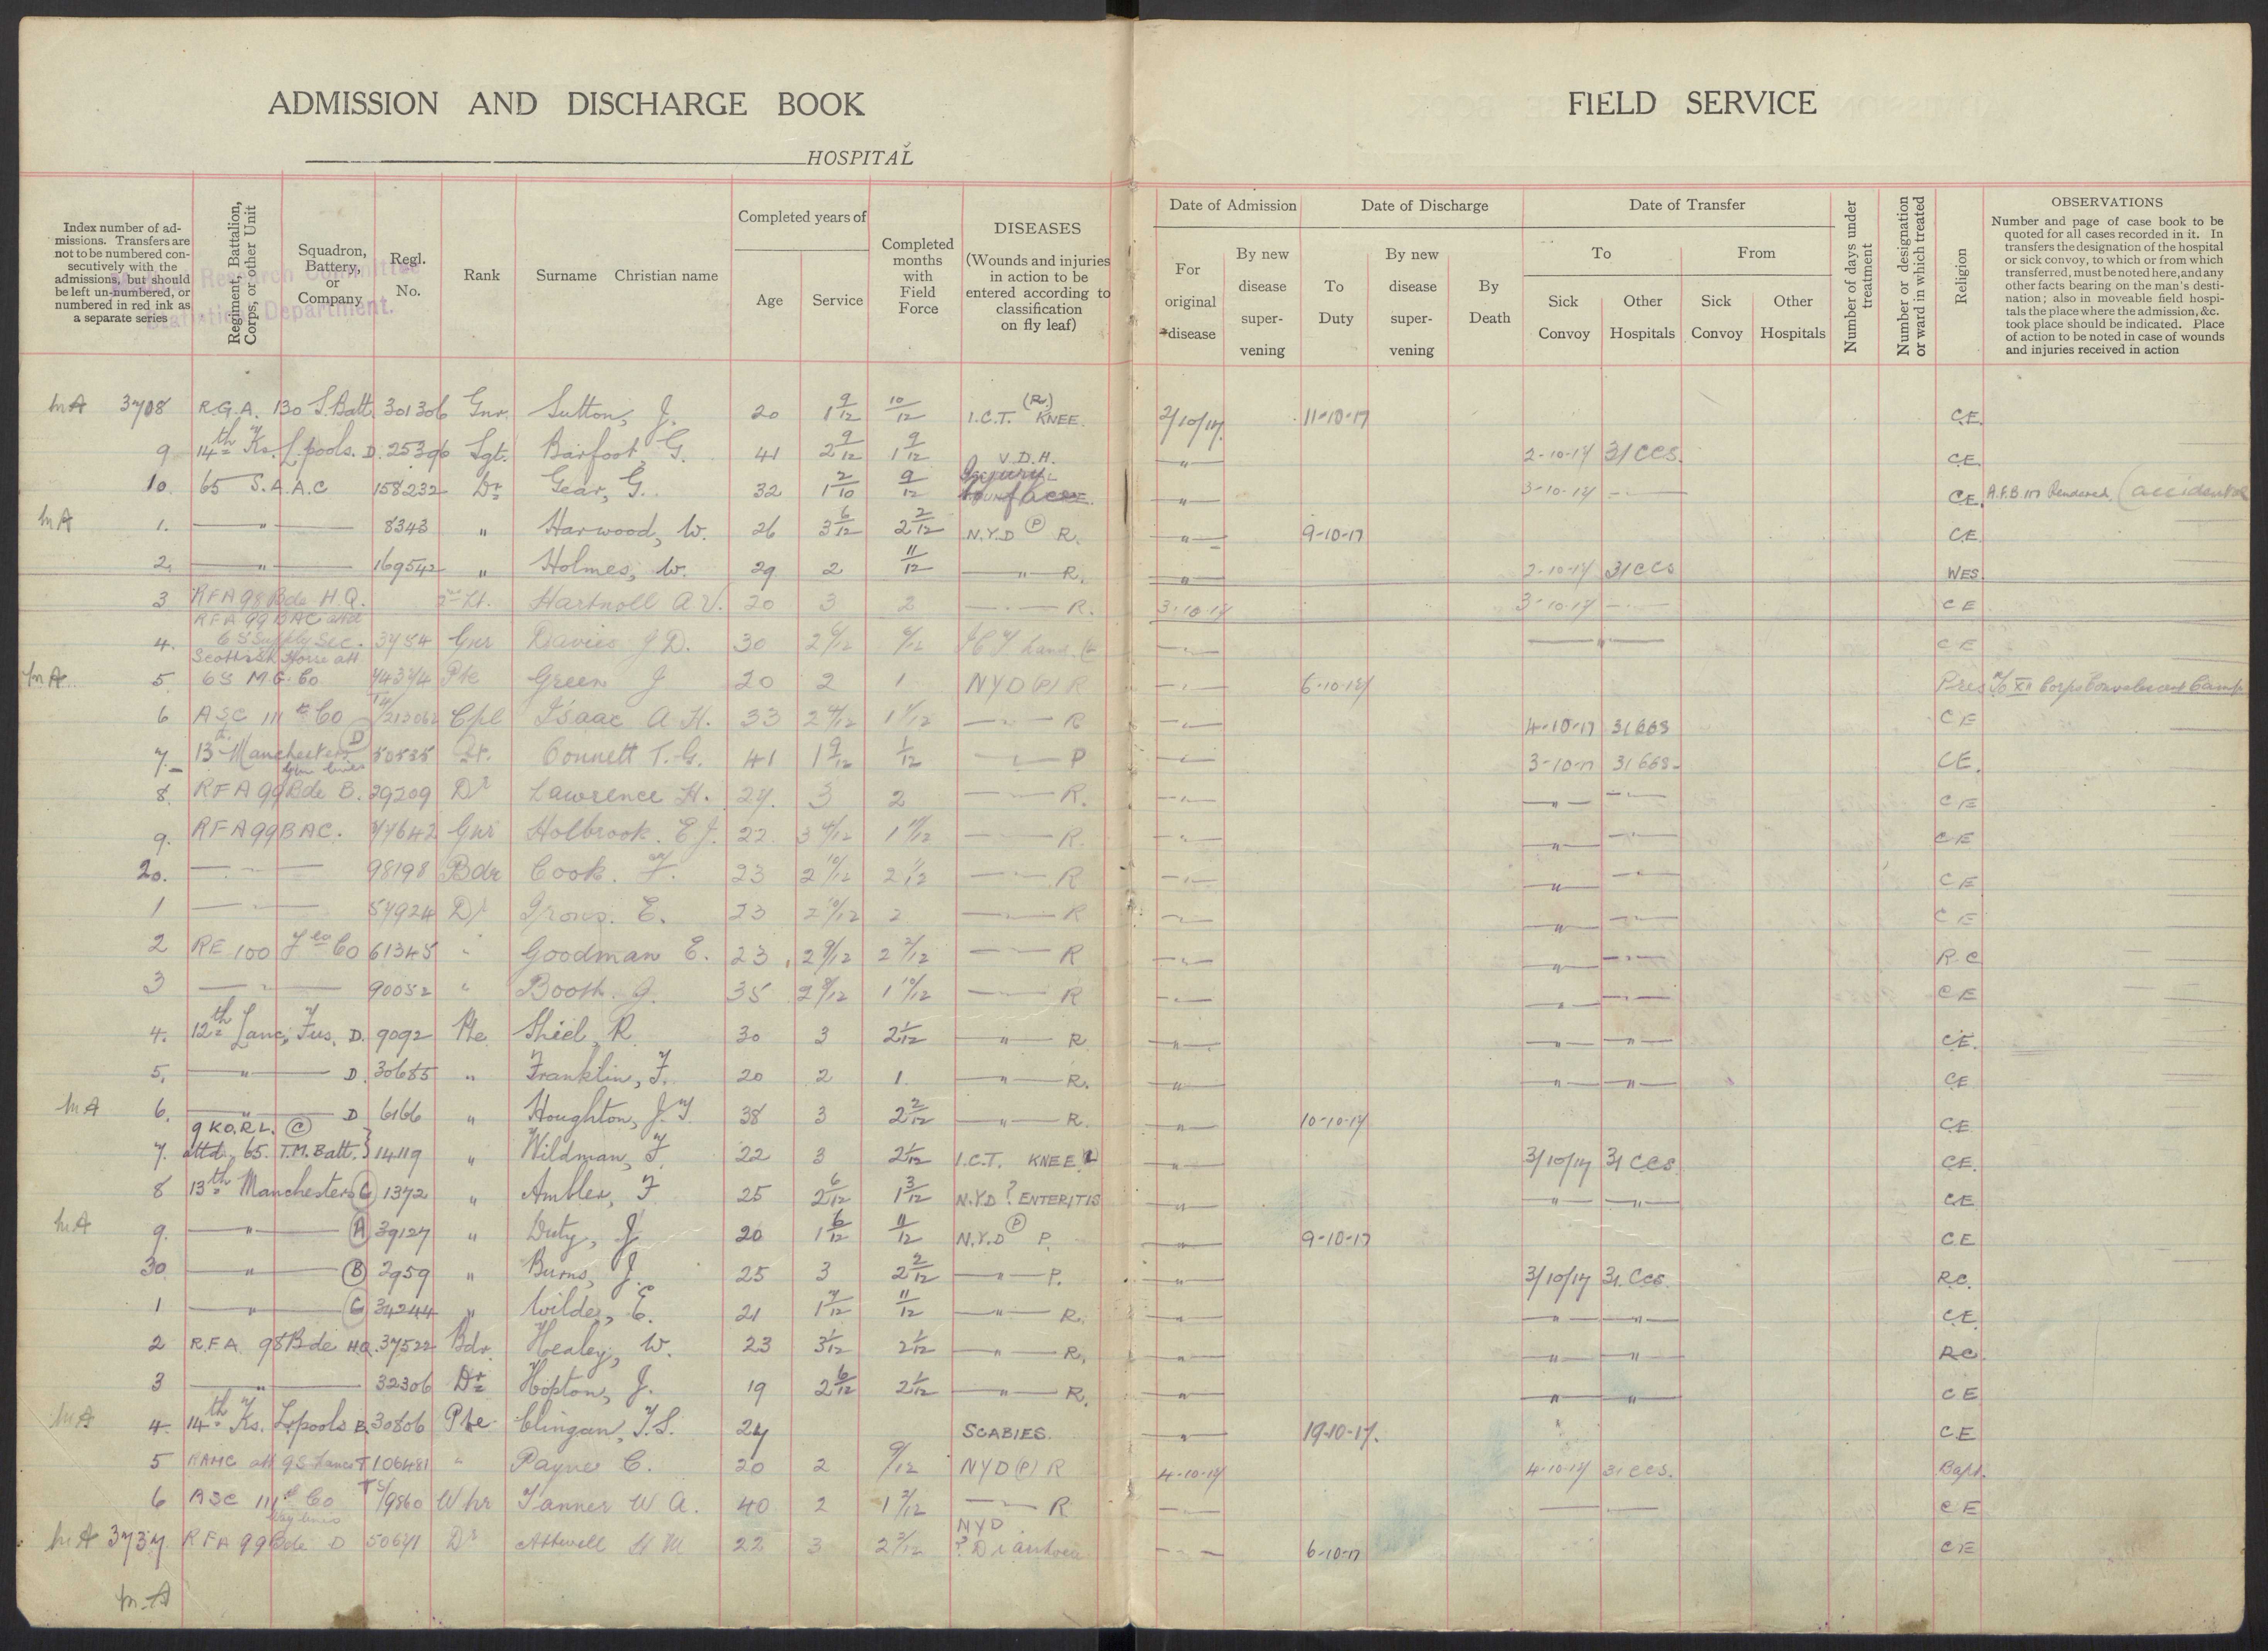 ADMISSION AND DISCHARGE BOOK
FIELD SERVICE
HOSPITAL
Index number of admissions. Transfers are not to be numbered consecutively with the admissions, but should be left un-numbered, or numbered in red ink as a separate series
Regiment, Battalion, Corps, or other Unit
Squadron, Battery, or Company
Regl. No.
Rank
Surname Christian name
Completed years of
Age Service
Completed months with Field Force
DISEASES (Wounds and injuries in action to be entered according to classification on fly leaf)
Date of Admission
For original disease
By new disease supervening
Date of Discharge
To Duty
By new disease supervening
By Death
Date of Transfer
To
Sick Convoy
Other Hospitals
From
Sick Convoy
Other Hospitals
Number of days under treatment
Number or designation or ward in which treated
Religion
OBSERVATIONS
Number and page of case book to be quoted for all cases recorded in it. In transfers the designation of the hospital or sick convoy, to which or from which transferred, must be noted here, and any other facts bearing on the man's destination; also in moveable field hospitals the place where the admission, &c. took place should be indicated. Place of action to be noted in case of wounds and injuries received in action
Research Committee
Department.
MA 3708 R.G.A. 130 S. Batt 301306 Gnr. Sutton, J. 20 1 9/12 10/12 I.C.T. (R.) KNEE. 2/10/17. 11-10-17 C.E.
9 14th Ks. L.pools. D. 25396 Sgt. Barfoot, G. 41 2 9/12 1 9/12 V.D.H. " 2-10-17 31 CCS. C.E.
10. 65 S.A.A.C 158232 Dr Gear, G. 32 1 2/10 9/12 Injury to face " 3-10-17 " C.E. A.F.B 117 Rendered. (accidental
MA 1. " 8343 " Harwood, W. 26 3 6/12 2 2/12 N.Y.D (P) R. " 9-10-17 C.E.
2. " 169542 " Holmes, W. 29 2 11/12 " R. " 2-10-17 31 CCS WES.
3 RFA 98 Bde H.Q. 2nd Lt. Hartnoll A.V. 20 3 2 " R. 3-10-17 3-10-17 " CE
4. RFA 99 BAC attd 65 Supply Sec. 3754 Gnr Davies J D. 30 " " CE
MA 5. Scottish Horse att 65 M.G. Co 74374 Pte Green J 20 2 1 NYD (P) R " 6-10-17 Pres XII Corps Convalescent Camp
6 ASC 111th Co T4/213062 Cpl Isaac A H. 33 " R " 4-10-17 31 CCS CE
7. 13th Manchesters (D) 50535 Connett T.G. 41 1 9/12 1/12 " P " 3-10-17 31 CCS. CE.
8. RFA 99 Bde B. 29209 Dr Lawrence H. 27. 3 2 " R. " " " CE
9. RFA 99 BAC. 77642 Gnr Holbrook. E J. 22. " R. " " " CE
20. " 98198 Bdr Cook. F. 23 2 10/12 2 1/12 " R " " " CE
1 " 57924 Dr E. 23 2 10/12 2 " R " " " CE
2 RE 100 Fld Co 61345 " Goodman E. 23 2 9/12 2 2/12 " R " " " R.C
3 " 90052 " Booth. J. 35 1 10/12 " R " " " CE
4. 12th Lanc, Fus. D. 9092 Pte. Shiel, R. 30 3 2 1/12 " R " " " C.E.
5. " D. 30685 " Franklin, F. 20 2 1. " R. " " " C.E
MA 6. " D 6166 " Houghton, J.T. 38 3 2 2/12 " R. " 10-10-17 C.E.
7. 9 K.O.R.L. (C) attd. 65. T.M. Batt. 14119 " Wildman, F. 22 3 2 1/12 I.C.T. KNEE. L " 3/10/17 31 CCS. C.E.
8 13th Manchesters (C) 1372 " Ambler, F. 25 2 6/12 1 3/12 N.Y.D ? ENTERITIS " " " C.E.
MA 9. " (A) 39127 " Duty, J. 20 1 6/12 11/12 N.Y.D (P) P. " 9-10-17 C.E
30 " (B) 2959 " Burns, J. 25 3 2 2/12 " P. " 3/10/17 31. CCS. R.C.
1 " (C) 34244 " Wilde, E. 21 1 7/12 11/12 " R. " " " C.E.
2 R.F.A. 98 Bde HQ. 37522 Bdr. Healey, W. 23 3 1/12 2 1/12 " R. " " " RC
3 " 32306 Dr Hopton, J. 19 2 6/12 2 1/12 " R. " " " C.E
MA 4. 14th Ks. Lpools B. 30806 Pte Clingan, T.S. 24 SCABIES. " 19-10-17. C.E
5 RAMC att 9 S. Lancs T 106481 " Payne C. 20 2 9/12 NYD (P) R 4-10-17 4-10-17 31 CCS. Bapt.
6 ASC 111th Co TS/9860 Whr Tanner W A. 40 2 1 2/12 " R " " CE
MA 3737. RFA 99 Bde D 50671 Dr Attwell H M 22 3 2 2/12 NYD ? Diarrhoea " 6-10-17 CE
MA